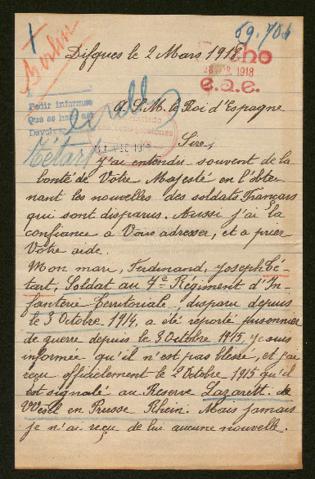 Berlin
59.704
Difques le 2 Mars 1918
1918
e.a.e.
Petir informes
A S. M. le Roi d'Espagne
Tétart
Sire,
J'ai entendu souvent de la
bonté de Votre Majesté en l'obte-
nant les nouvelles des soldats Français
qui sont disparus. Aussi j'ai la
confiance a Vous adresser, et a prier
Votre aide.
Mon mari, Ferdinand, Joseph Té-
tart, Soldat au Régiment d'In-
fanterie Territoriale, disparu depuis
le 3 Octobre 1914, a été reporté prisonnier
de guerre depuis le 3 Octobre 1915, je suis
informée qu'il n'est pas blessé, et j'ai
reçu officielement le 2 Octobre 1915 qu'il
est signalé au Reserve Lazarett de
Wesel en Prusse Rhein. Mais jamais
je n'ai reçu de lui aucune nouvelle.